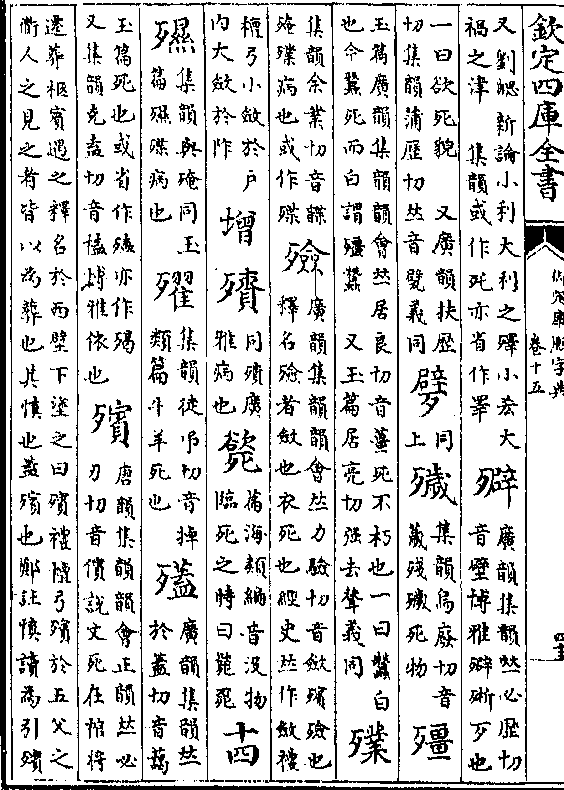 欽定四庫全書
御定康熙字典
卷十五
又劉勰新論小利大利之殬小忠大
禍之津 集韻或作死亦省作睪
廣韻集韻𠀤必歷切
音壁博雅
歹也
一曰欲死貌 又廣韻扶歷
切集韻蒲歷切𠀤音甓義同
同上
集韻烏廢切音
薉殘殲死物
殭
玉篇廣韻集韻韻會𠀤居良切音薑死不朽也一曰蠶白
也今蠶死而白謂殭蠶 又玉篇居亮切强去聲義同
集韻余業切音
殗殜病也或作殜
殮
廣韻集韻韻會𠀤力驗切音斂殯殮也
釋名殮者斂也衣死也經史𠀤作斂禮
檀弓小斂於戶
內大斂於阼
增
殨
同殨廣
雅病也
篇海類編音没物
臨死之時曰
十四
集韻與殗同玉
篇 殜病也
集韻徒弔切音掉
類篇牛羊死也
廣韻集韻𠀤
於蓋切音藹
玉篇死也或省作 亦作
又集韻克盍切音榼博雅依也
殯
唐韻集韻韻會正韻𠀤必
刃切音儐說文死在棺將
遷葬柩賓遇之釋名於西壁下塗之曰殯禮檀弓殯於五父之
衢人之見之者皆以為葬也其慎也蓋殯也鄭註慎讀為引殯